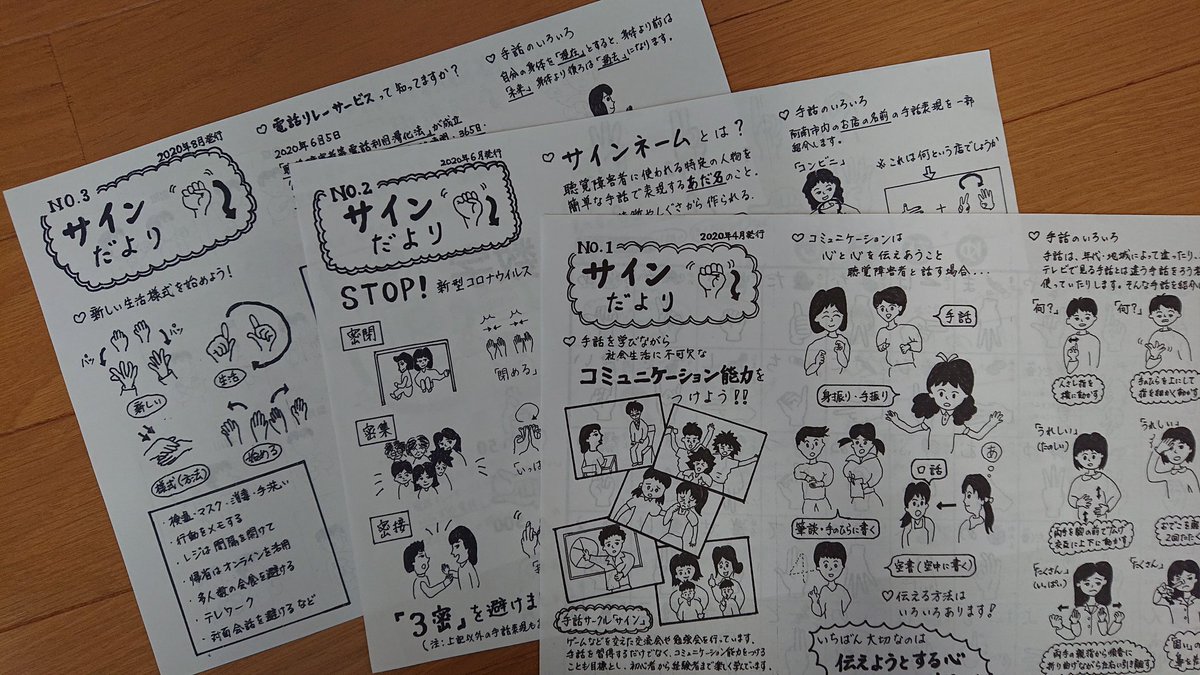 NO.3
2020年8月発行
サイン
だより
♡ 新しい生活様式を始めよう!
パッ
パッ
新しい
生活
様式(方法)
始める
・検温・マスク・消毒・手洗い
・行動をメモする
・レジは間隔を開けて
・帰省はオンラインを活用
・多人数の会食を避ける
・テレワーク
・対面会話を避ける など
♡ 電話リレーサービスって知ってますか?
2020年6月5日
電話利用
が成立
365日
♡ 手話のいろいろ
自分の身体を「現在」とすると、身体より前は
「未来」身体より後ろは「過去」になります。
NO.2
2020年6月発行
サイン
だより
STOP! 新型コロナウイルス
密閉
「閉める」
密集
密接
「3密」を避けま
(注:上記以外の手話表現も
♡ サインネームとは?
聴覚障害者に使われる特定の人物を
簡単な手話で表現するあだ名のこと。
やしぐさから作られる。
♡ 手話のいろいろ
阿南市内のお店の名前の手話表現を一部
紹介します。
「コンビニ」
※これは何という店でしょうか
+
NO.1
2020年4月発行
サイン
だより
♡ 手話を学びながら
社会生活に不可欠な
コミュニケーション能力を
つけよう!!
手話サークル「サイン」
ゲームなどを交えた交流会や勉強会を行っています。
手話を習得するだけでなく、コミュニケーション能力をつける
ことも目標とし、初心者から経験者まで楽しく学んでいます。
♡ コミュニケーションは
心と心を伝えあうこと
聴覚障害者と話す場合...
手話
身振り・手振り
口話
あ
筆談・手のひらに書く
空書(空中に書く)
♡ 伝える方法は
いろいろあります!
いちばん大切なのは
伝えようとする心
♡ 手話のいろいろ
手話は、年代・地域によって違ったり...
テレビで見る手話とは違う手話をろう
使っていたりします。そんな手話を紹介
「何?」
「何?」
人さし指を
横に動かす
手のひらを上にして
指を細かく動かす
「うれしい」
(たのしい)
「うれしい」
両手を胸の前で
交互に上下に動かす
2回たたく
「たくさん」
(いっぱい)
「たくさん」
両手の親指から順番に
折り曲げながら左右に引き離す